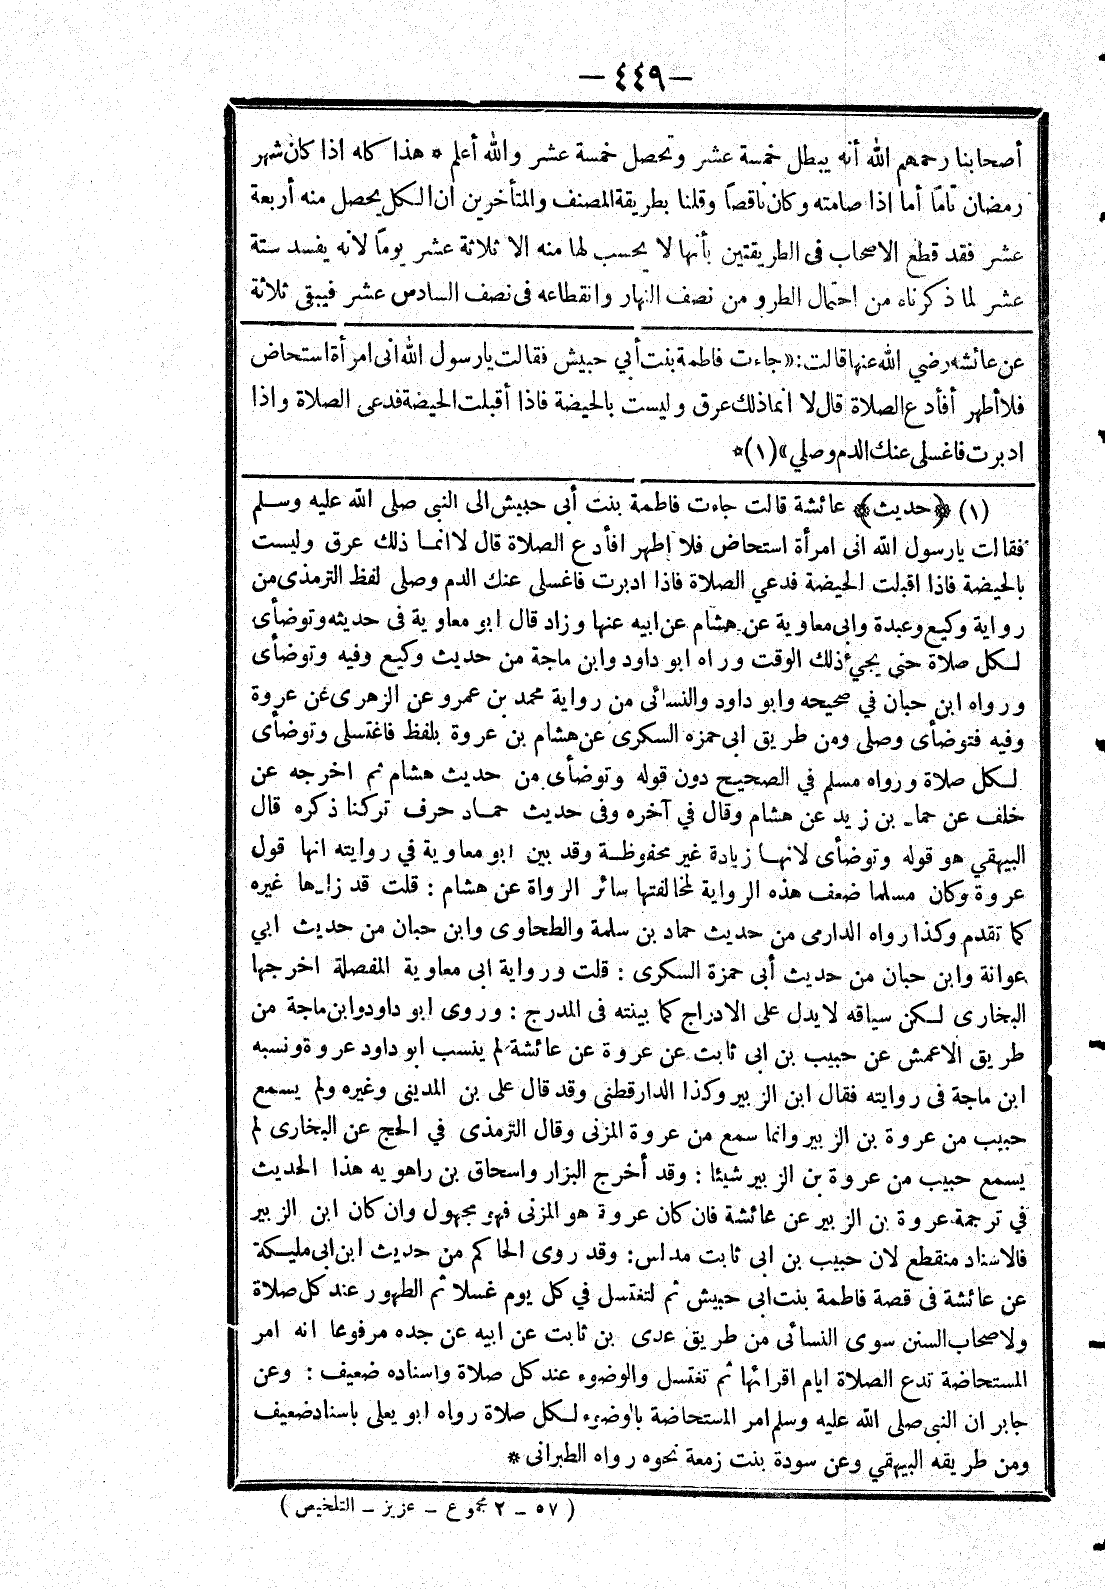 — ٤٤٩ —
أصحابنا رحمهم الله أنه يبطل خمسة عشر وتحصل خمسة عشر والله أعلم * هذا كله اذا كان شهر
رمضان تامًا أما اذا صامته وكان ناقصًا وقلنا بطريقة المصنف والمتأخرين ان الكل يحصل منه أربعة
عشر فقد قطع الاصحاب فى الطريقتين بأنها لا يحسب لها منه الا ثلاثة عشر يومًا لانه يفسد ستة
عشر لما ذكرناه من احتمال الطرو من نصف النهار وانقطاعه فى نصف السادس عشر فيبقى ثلاثة
عن عائشه رضي الله عنها قالت: «جاءت فاطمة بنت أبي حبيش فقالت يارسول الله انى امرأة استحاض
فلا أطهر أفأدع الصلاة قال لا انما ذلك عرق وليست بالحيضة فاذا أقبلت الحيضة فدعى الصلاة واذا
ادبرت فاغسلى عنك الدم وصلي» (١)*
(١) ﴿حديث﴾ عائشة قالت جاءت فاطمة بنت أبى حبيش الى النبى صلى الله عليه وسلم
فقالت يارسول الله انى امرأة استحاض فلا اطهر افأدع الصلاة قال لا انما ذلك عرق وليست
بالحيضة فاذا اقبلت الحيضة فدعي الصلاة فاذا ادبرت فاغسلى عنك الدم وصلى لفظ الترمذى من
رواية وكيع وعبدة وابى معاوية عن هشام عن ابيه عنها وزاد قال ابو معاوية فى حديثه وتوضأى
لكل صلاة حتى يجيئ ذلك الوقت وراه ابو داود وابن ماجة من حديث وكيع وفيه وتوضأى
ورواه ابن حبان في صحيحه وابو داود والنسائى من رواية محمد بن عمرو عن الزهرى عن عروة
وفيه فتوضأى وصلى ومن طريق ابى حمزه السكرى عن هشام بن عروة بلفظ فاغتسلى وتوضأى
لكل صلاة ورواه مسلم في الصحيح دون قوله وتوضأى من حديث هشام ثم اخرجه عن
خلف عن حماد بن زيد عن هشام وقال في آخره وفى حديث حماد حرف تركنا ذكره قال
البيهقي هو قوله وتوضأى لانها زيادة غير محفوظة وقد بين ابو معاوية في روايته انها قول
عروة وكان مسلما ضعف هذه الرواية لمخالفتها سائر الرواة عن هشام : قلت قد زادها غيره
كما تقدم وكذا رواه الدارمى من حديث حماد بن سلمة والطحاوى وابن حبان من حديث ابي
عوانة وابن حبان من حديث أبى حمزة السكرى : قلت ورواية ابى معاوية المفصلة اخرجها
البخارى لكن سياقه لا يدل على الادراج كما بينته فى المدرج : وروى ابو داود وابن ماجة من
طريق الاعمش عن حبيب بن ابى ثابت عن عروة عن عائشة لم ينسب ابو داود عروة ونسبه
ابن ماجة فى روايته فقال ابن الزبير وكذا الدارقطنى وقد قال على بن المدينى وغيره ولم يسمع
حبيب من عروة بن الزبير وانما سمع من عروة المزنى وقال الترمذى في الحج عن البخارى لم
يسمع حبيب من عروة بن الزبير شيئا : وقد أخرج البزار واسحاق بن راهويه هذا الحديث
في ترجمة عروة بن الزبير عن عائشة فان كان عروة هو المزنى فهو مجهول وان كان ابن الزبير
فالاسناد منقطع لان حبيب بن ابى ثابت مدلس: وقد روى الحاكم من حديث ابن ابى مليكة
عن عائشة فى قصة فاطمة بنت ابى حبيش ثم لتغتسل في كل يوم غسلا ثم الطهور عند كل صلاة
ولاصحاب السنن سوى النسائى من طريق عدى بن ثابت عن ابيه عن جده مرفوعا انه امر
المستحاضة تدع الصلاة ايام اقرائها ثم تغتسل والوضوء عند كل صلاة واسناده ضعيف : وعن
جابر ان النبى صلى الله عليه وسلم امر المستحاضة بالوضوء لكل صلاة رواه ابو يعلى باسناد ضعيف
ومن طريقه البيهقي وعن سودة بنت زمعة نحوه رواه الطبرانى *
(٥٧ – ٢ مجموع – عزيز – التلخيص)